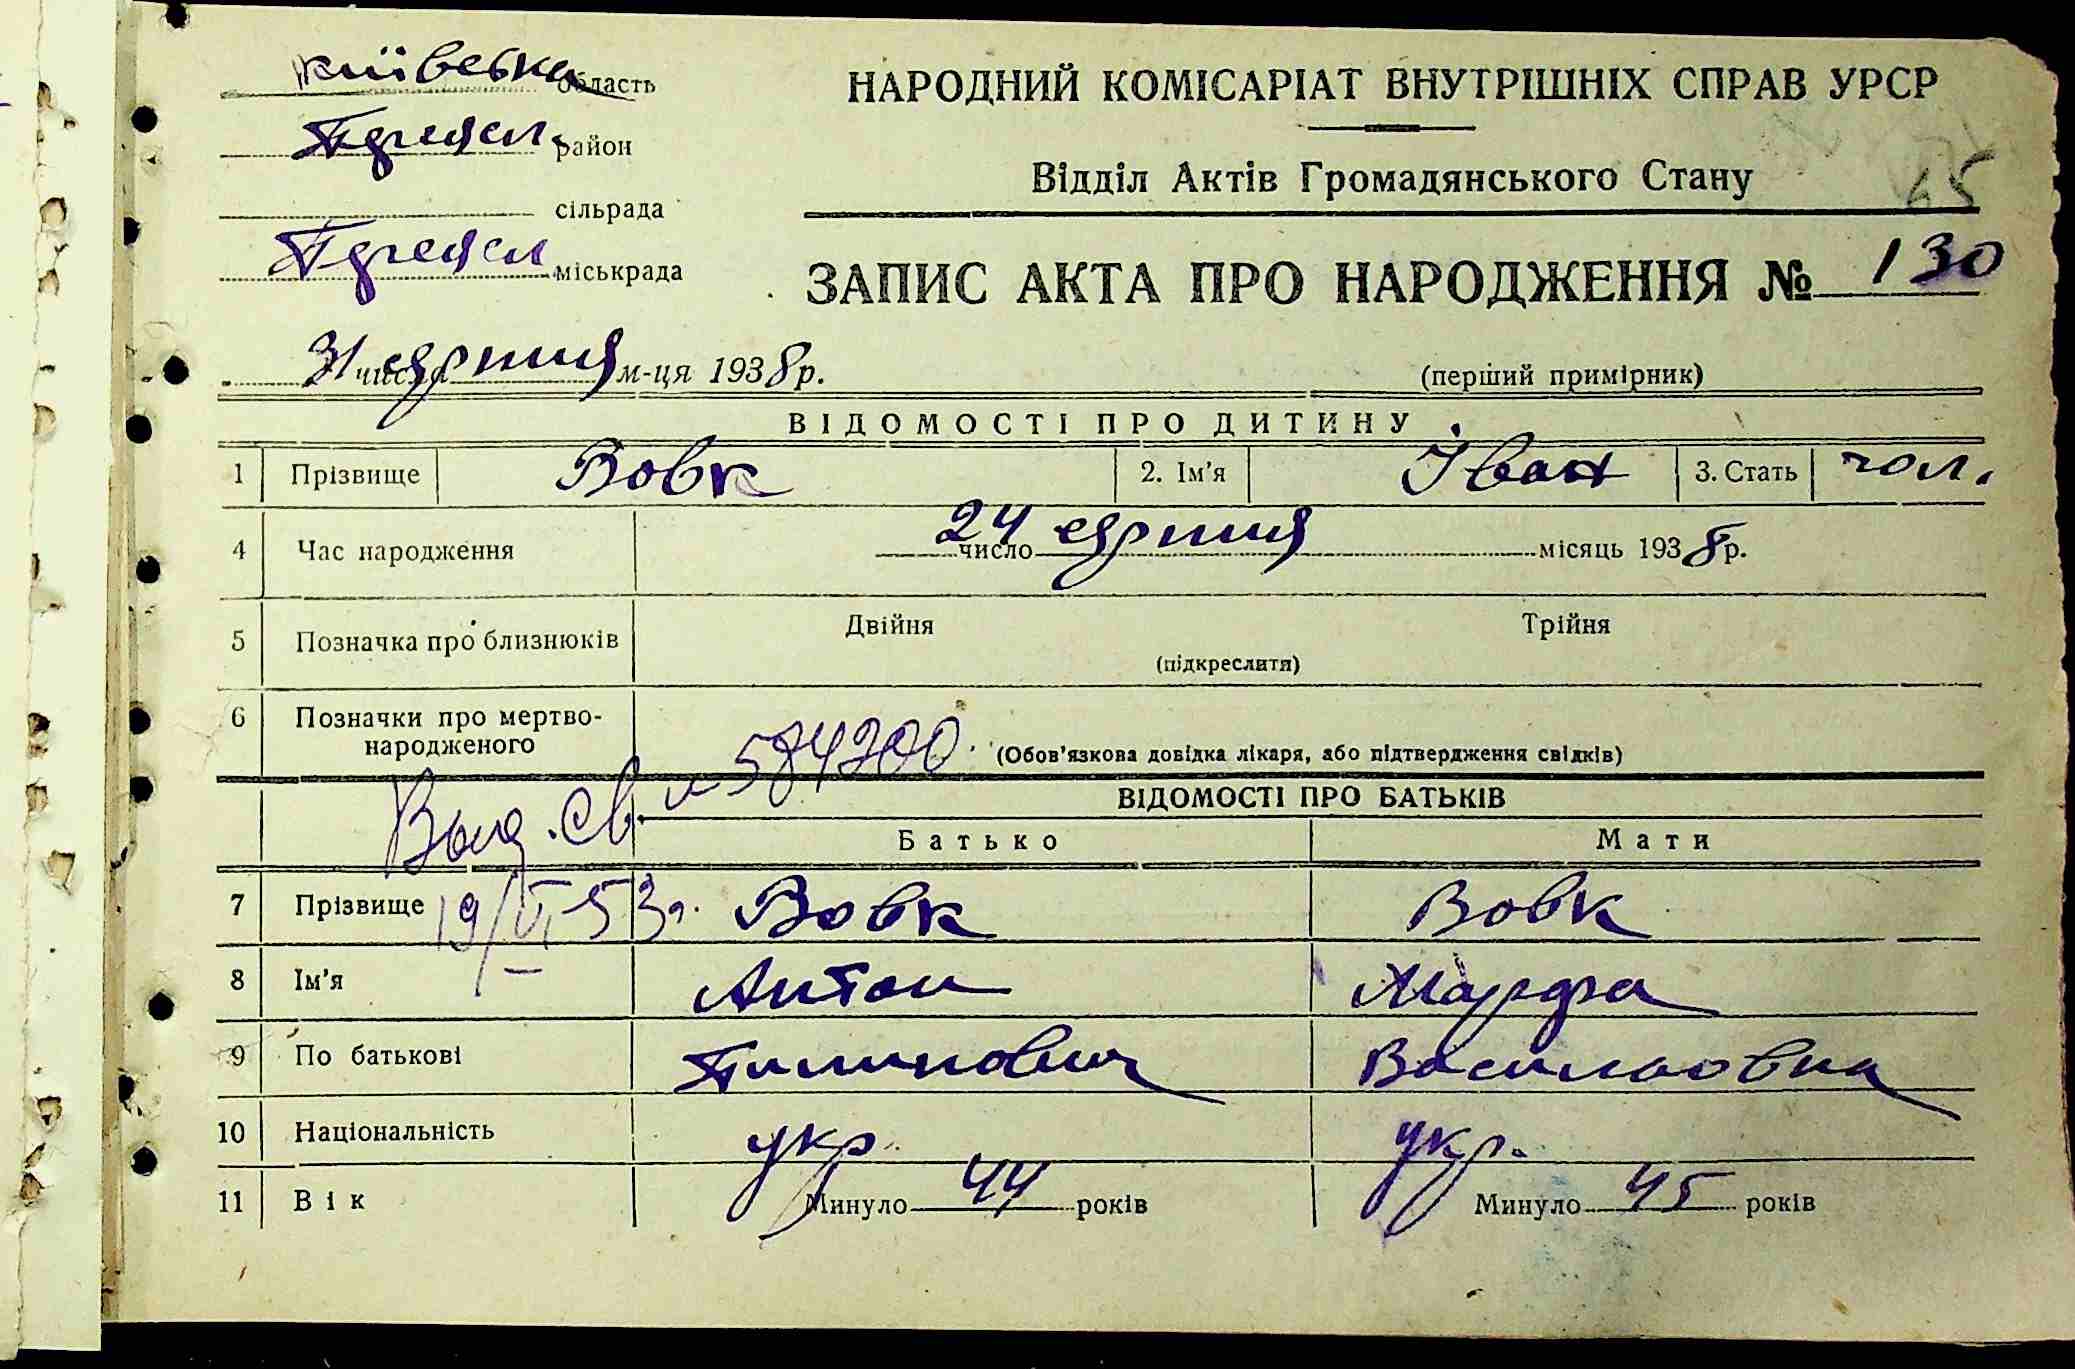 київська область
район
сільрада
міськрада
НАРОДНИЙ КОМІСАРІАТ ВНУТРІШНІХ СПРАВ УРСР
Відділ Актів Громадянського Стану
65
ЗАПИС АКТА ПРО НАРОДЖЕННЯ № 130
31 числа серпня м-ця 1938 р.
(перший примірник)
ВІДОМОСТІ ПРО ДИТИНУ
1 Прізвище Вовк 2. Ім'я Іван 3. Стать чол.
4 Час народження 24 число серпня місяць 1938 р.
5 Позначка про близнюків Двійня Трійня
(підкреслити)
6 Позначки про мертво-
народженого
(Обов'язкова довідка лікаря, або підтвердження свідків)
Выд. св. № 584200.
19/VI 53 г.
ВІДОМОСТІ ПРО БАТЬКІВ
Батько Мати
7 Прізвище Вовк Вовк
8 Ім'я Антон Марфа
9 По батькові Пилипович Васильовна
10 Національність укр. укр.
11 Вік Минуло 44 років Минуло 45 років